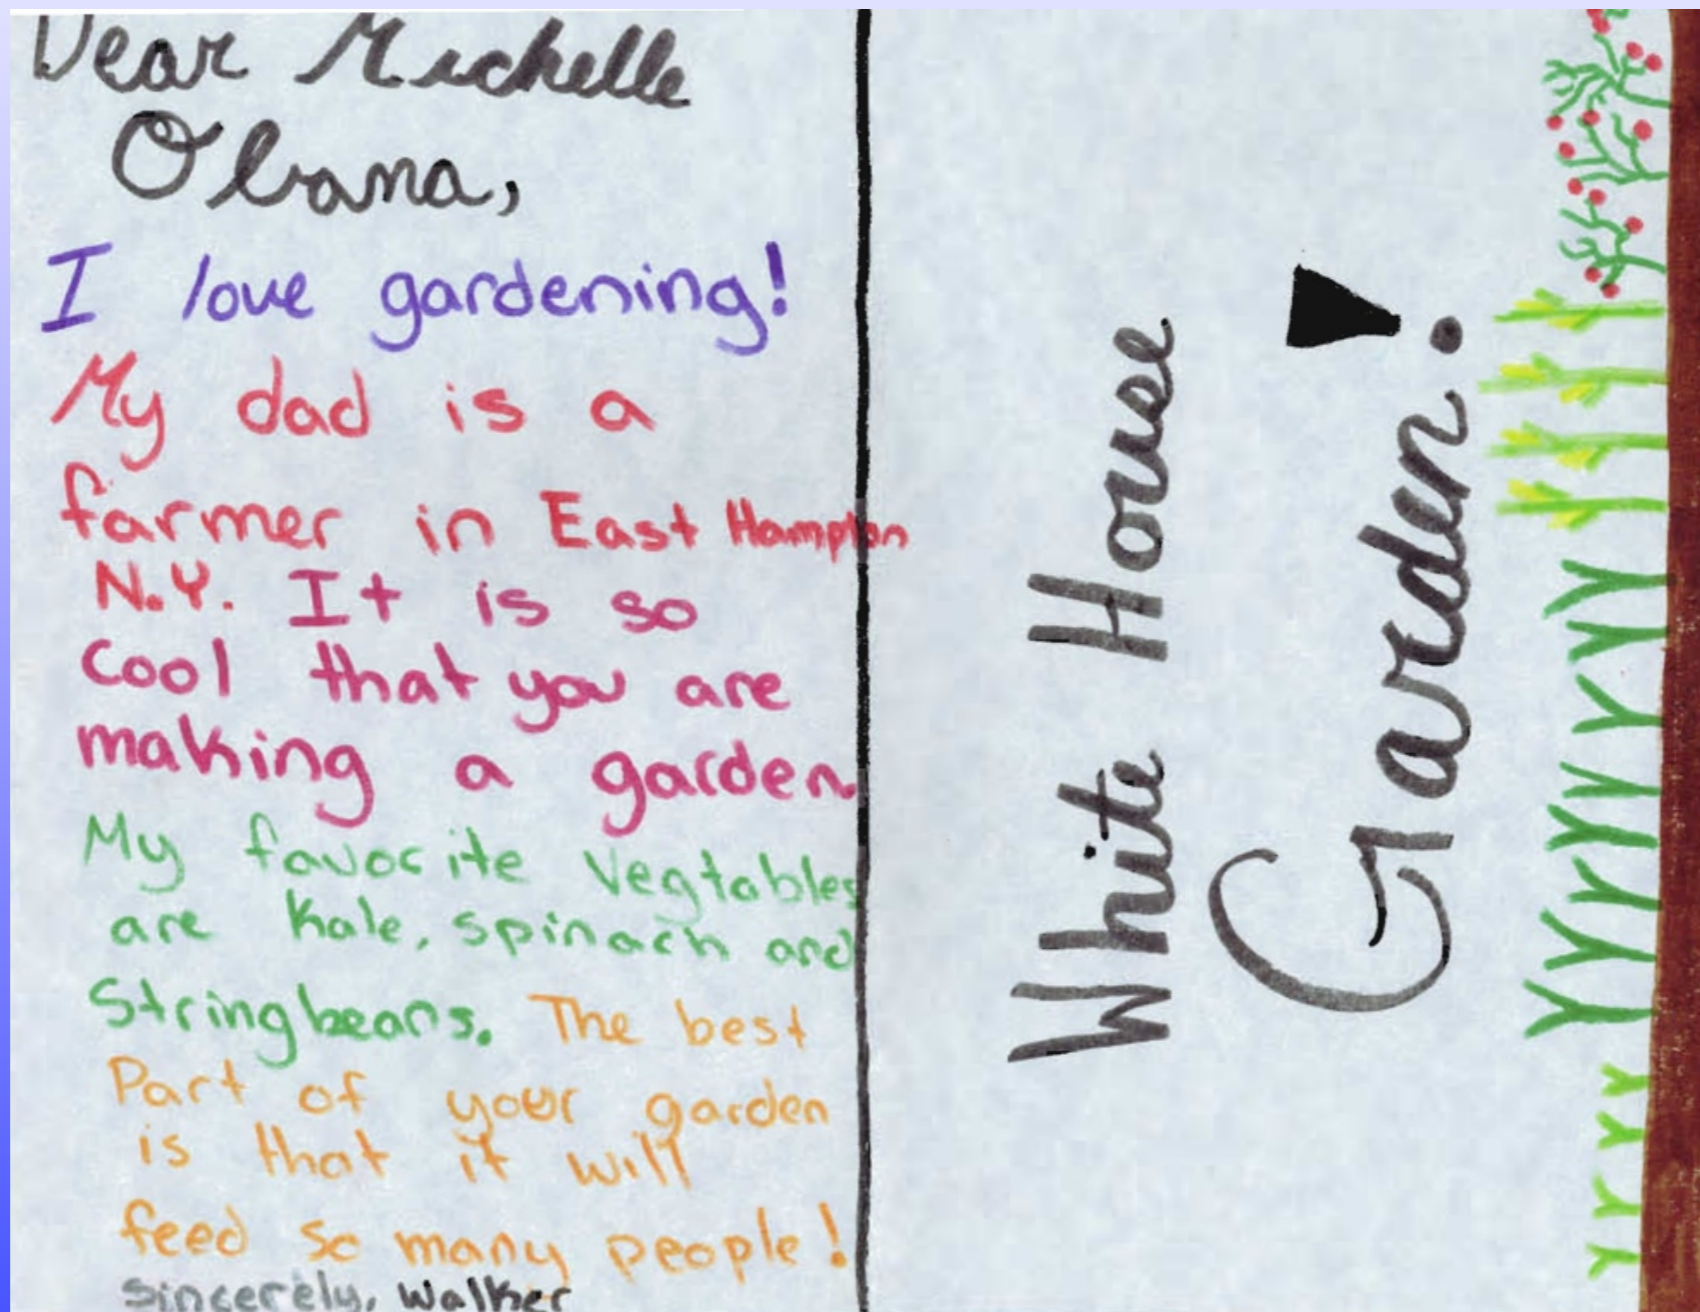 Dear Michelle
Obama,
I love gardening!
My dad is a
farmer in East Hampton
N.Y. It is so
cool that you are
making a garden.
My favorite vegtables
are kale, spinach and
Stringbeans. The best
Part of your garden
is that it will
feed so many people!
sincerely, Walker
White House
Garden!